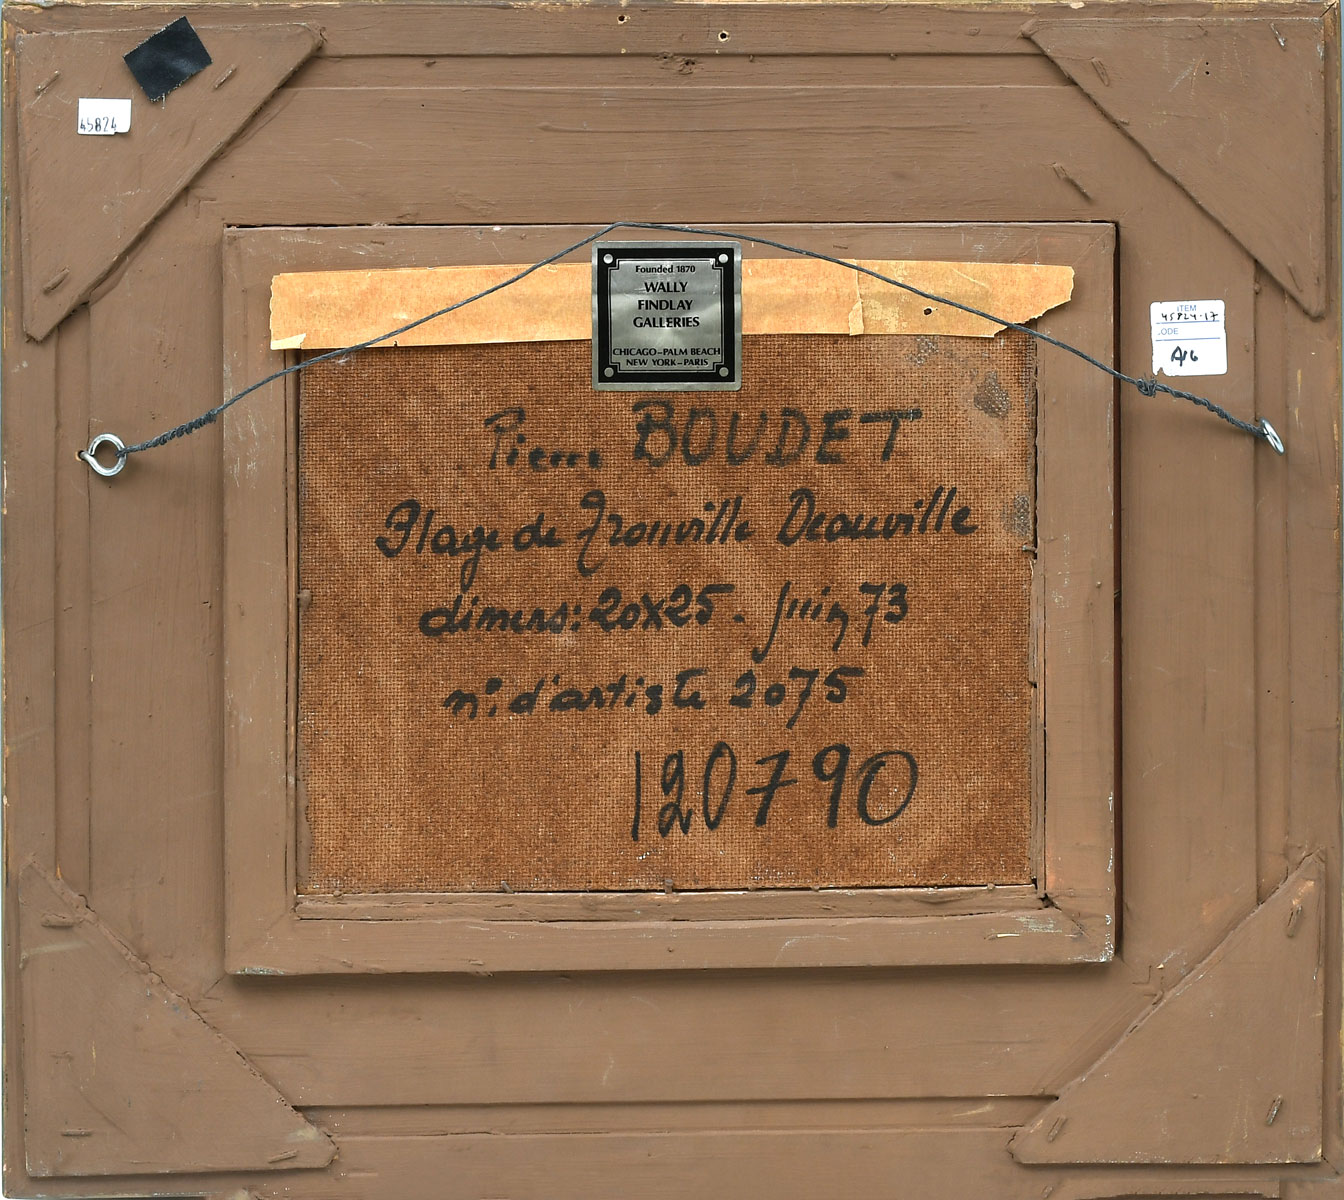 45824
Founded 1870
WALLY
FINDLAY
GALLERIES
CHICAGO–PALM BEACH
NEW YORK–PARIS
ITEM
45824-17
ODE
A16
Pierre BOUDET
Plage de Trouville Deauville
dimens: 20x25. juin 73
n° d'artiste 2075
120790